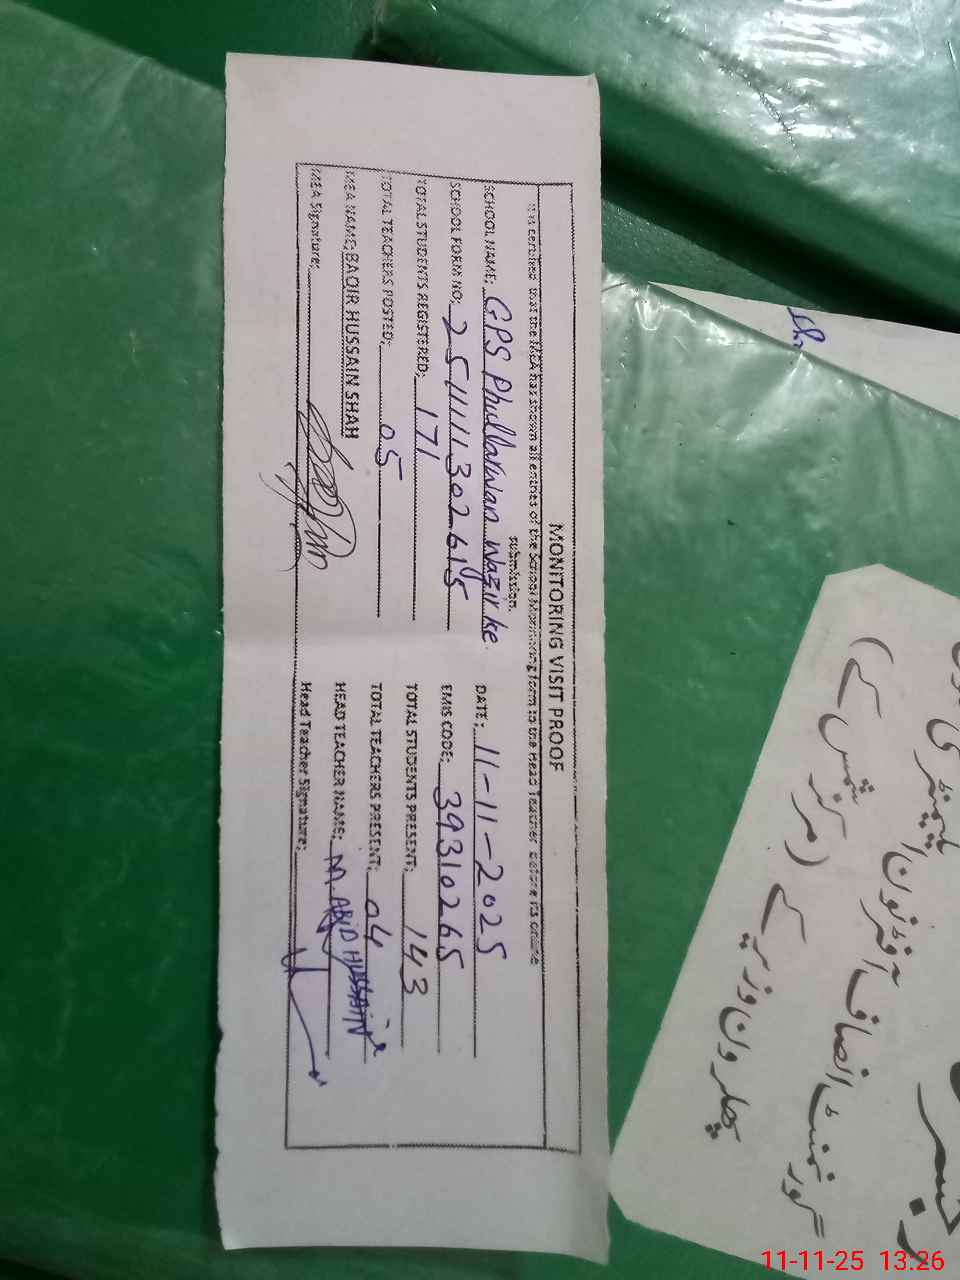 MONITORING VISIT PROOF
It is certified that the MEA has shown all entries of the School Monitoring form to the Head Teacher before its online
submission.
SCHOOL NAME: GPS Phullarwan Wazir ke
DATE: 11-11-2025
SCHOOL FORM NO: 251111302615
EMIS CODE: 39310265
TOTAL STUDENTS REGISTERED: 171
TOTAL STUDENTS PRESENT: 143
TOTAL TEACHERS POSTED: 05
TOTAL TEACHERS PRESENT: 04
MEA NAME: BAQIR HUSSAIN SHAH
HEAD TEACHER NAME: M. ABID HUSSAIN
MEA Signature:
Head Teacher Signature:
رجسٹر
گورنمنٹ انصاف آفٹرنون ایلیمنٹری
پھلروان وزیر کے (مرکز شمس کے)
11-11-25 13:26